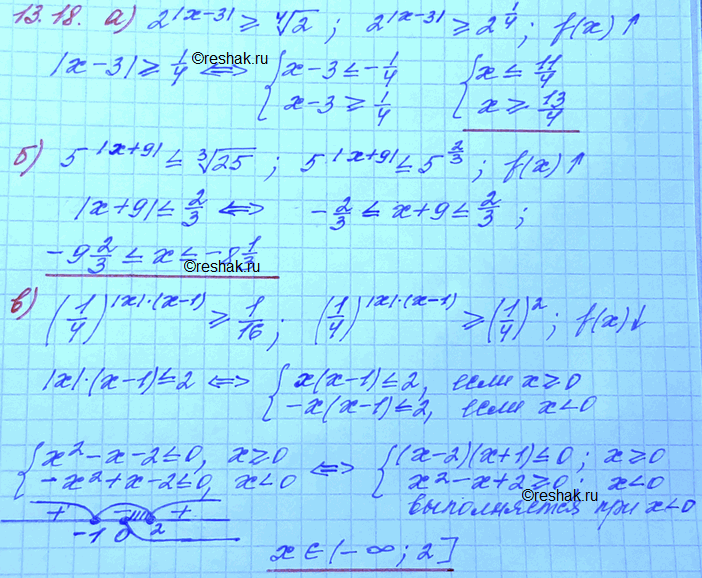 13.18. а) 2^|x-3| ≥ ⁴√2 ; 2^|x-3| ≥ 2^(1/4) ; f(x) ↑
©reshak.ru
|x-3| ≥ 1/4 ⟺ { x-3 ≤ -1/4 { x ≤ 11/4
x-3 ≥ 1/4 x ≥ 13/4
б) 5^|x+9| ≤ ³√25 ; 5^|x+9| ≤ 5^(2/3) ; f(x) ↑
|x+9| ≤ 2/3 ⟺ -2/3 ≤ x+9 ≤ 2/3 ;
-9 2/3 ≤ x ≤ -8 1/3
©reshak.ru
в) (1/4)^(|x|·(x-1)) ≥ 1/16 ; (1/4)^(|x|·(x-1)) ≥ (1/4)^2 ; f(x)↓
|x|·(x-1) ≤ 2 ⟺ { x(x-1) ≤ 2, если x ≥ 0
-x(x-1) ≤ 2, если x < 0
{ x²-x-2 ≤ 0, x ≥ 0 ⟺ { (x-2)(x+1) ≤ 0 ; x ≥ 0
-x²+x-2 ≤ 0, x < 0 x²-x+2 ≥ 0 ; x < 0
©reshak.ru
выполняется при x < 0
+ - +
-1 0 2
x ∈ (-∞; 2]